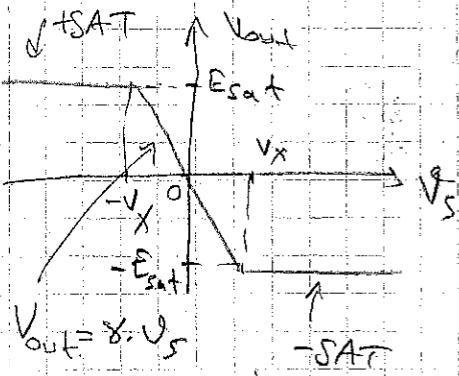 +SAT
Vout
Esat
Vx
0
-Vx
Vs
-Esat
Vout = γ. Vs
-SAT